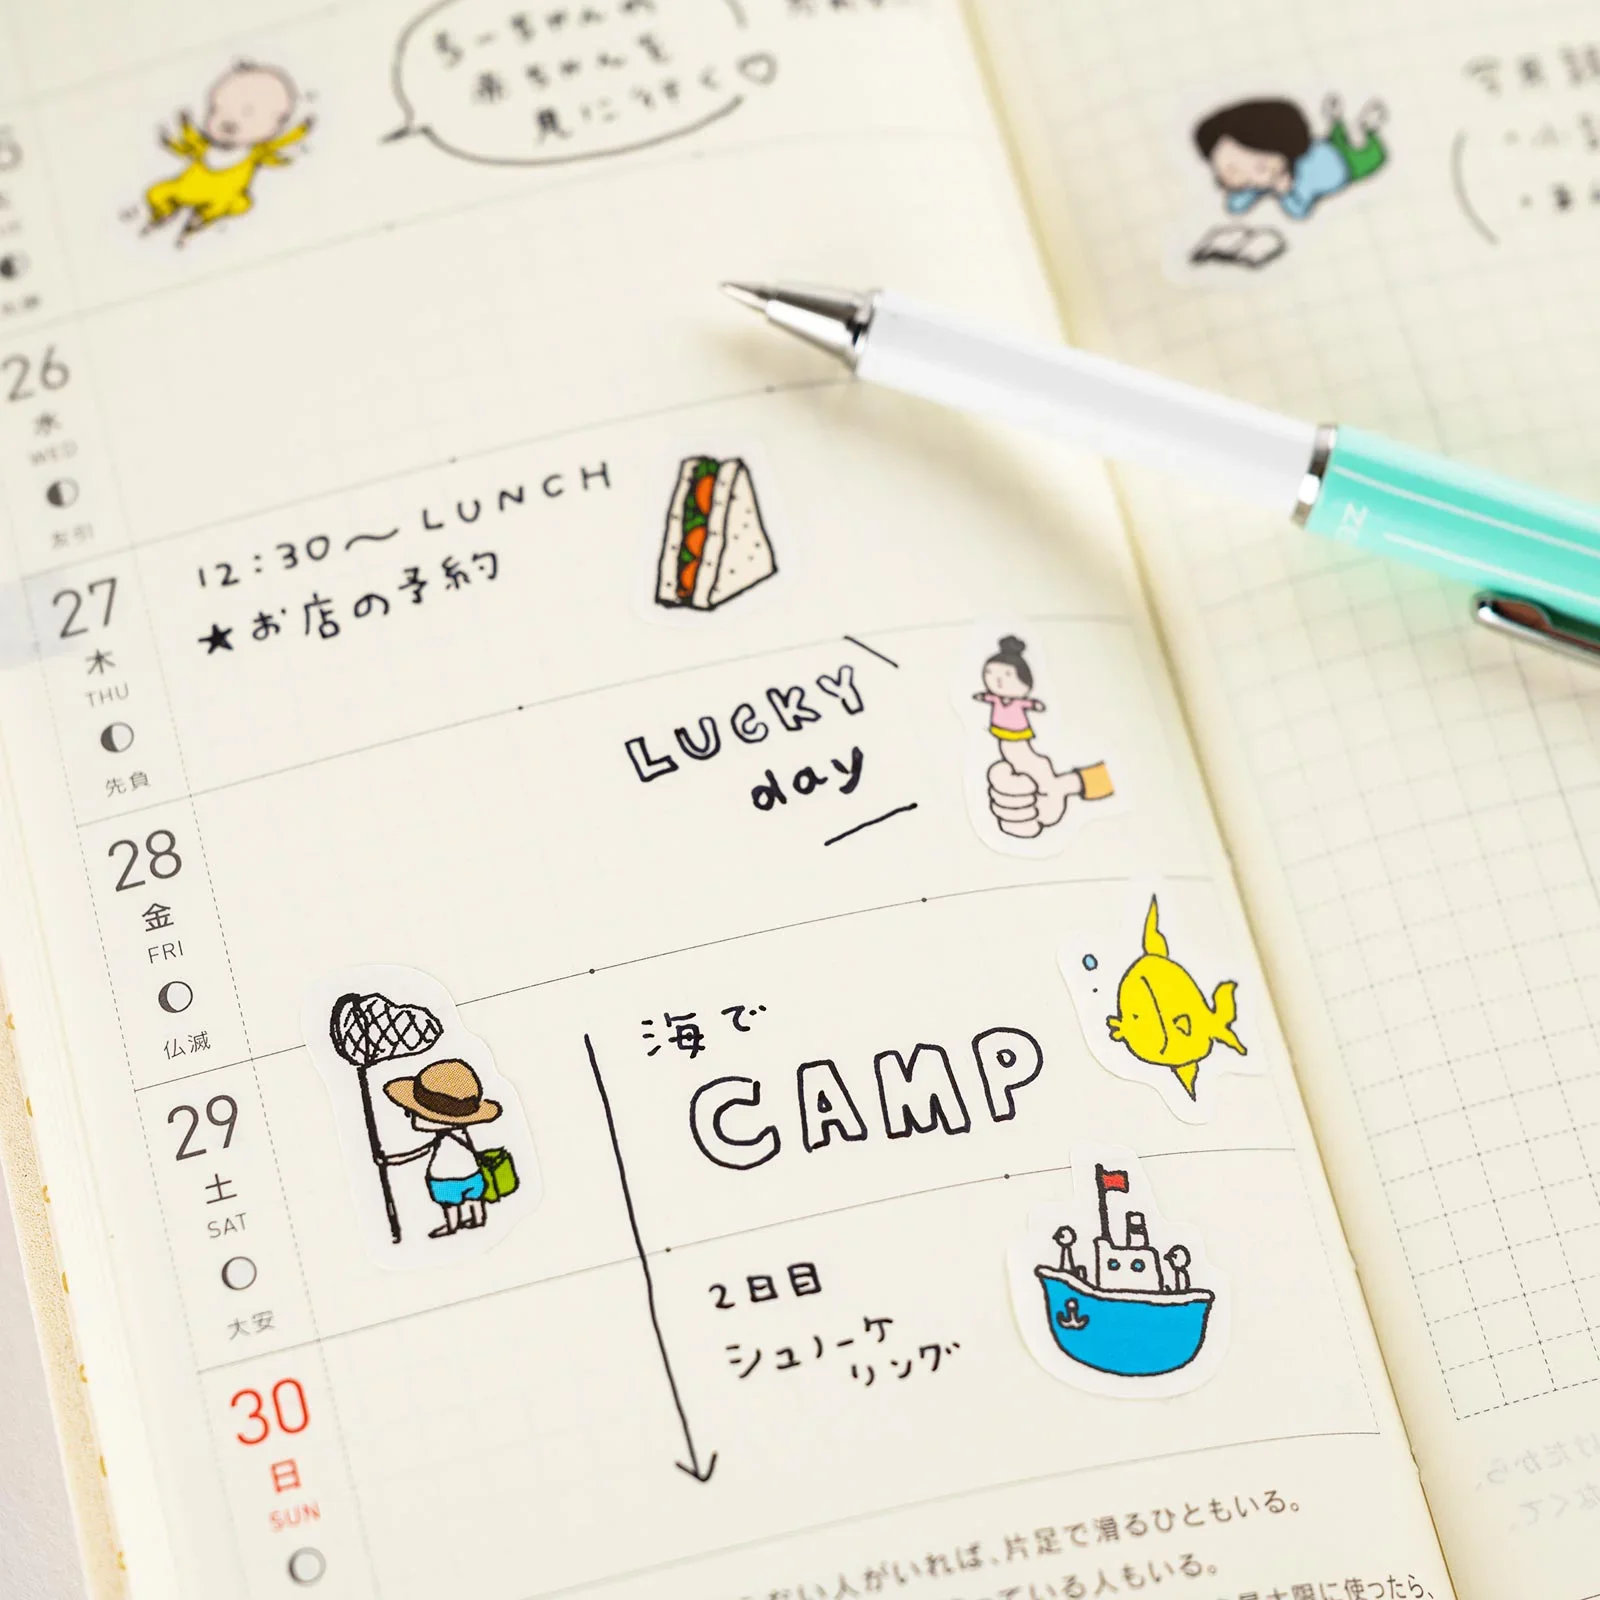 ちーちゃんの
赤ちゃんを
見に行く♡
26
水
WED
友引
12:30〜LUNCH
★お店の予約
27
木
THU
先負
LUCKY
day
28
金
FRI
仏滅
海で
CAMP
29
土
SAT
大安
2日目
シュノーケ
リング
30
日
SUN
ない人がいれば、片足で滑るひともいる。
ている人もいる。
最大限に使ったら、